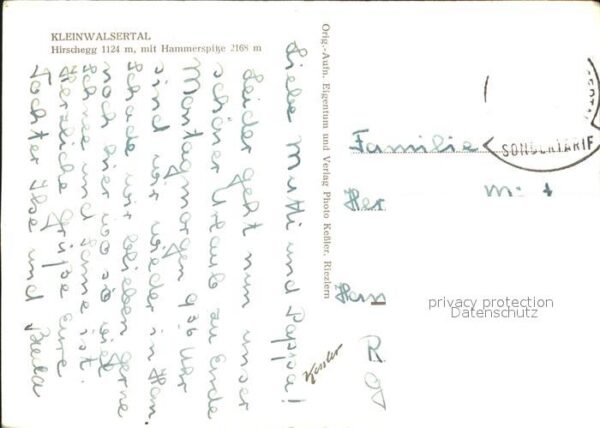 KLEINWALSERTAL
Hirschegg 1124 m, mit Hammerspitze 2168 m
Liebe Mutti und Pappa!
Leider geht nun unser
schöner Urlaub zu Ende
Montagmorgen 9.36 Uhr
sind wir wieder in Han.
Schade wir blieben gerne
noch hier wo so viel
Schnee und Sonne ist.
Herzliche Grüße Eure
Tochter Ilse und
Orig.-Aufn. Eigentum und Verlag Photo Keßler, Riezlern
Kessler
SONDERTARIF
Familie
Her
Hann
privacy protection
Datenschutz